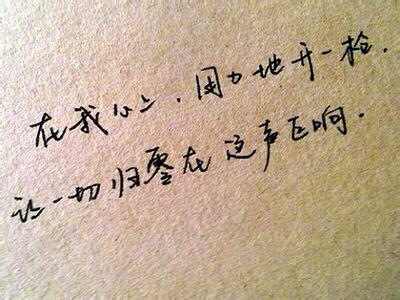 在我心上，用力地开一枪．
让一切归零在这声巨响．